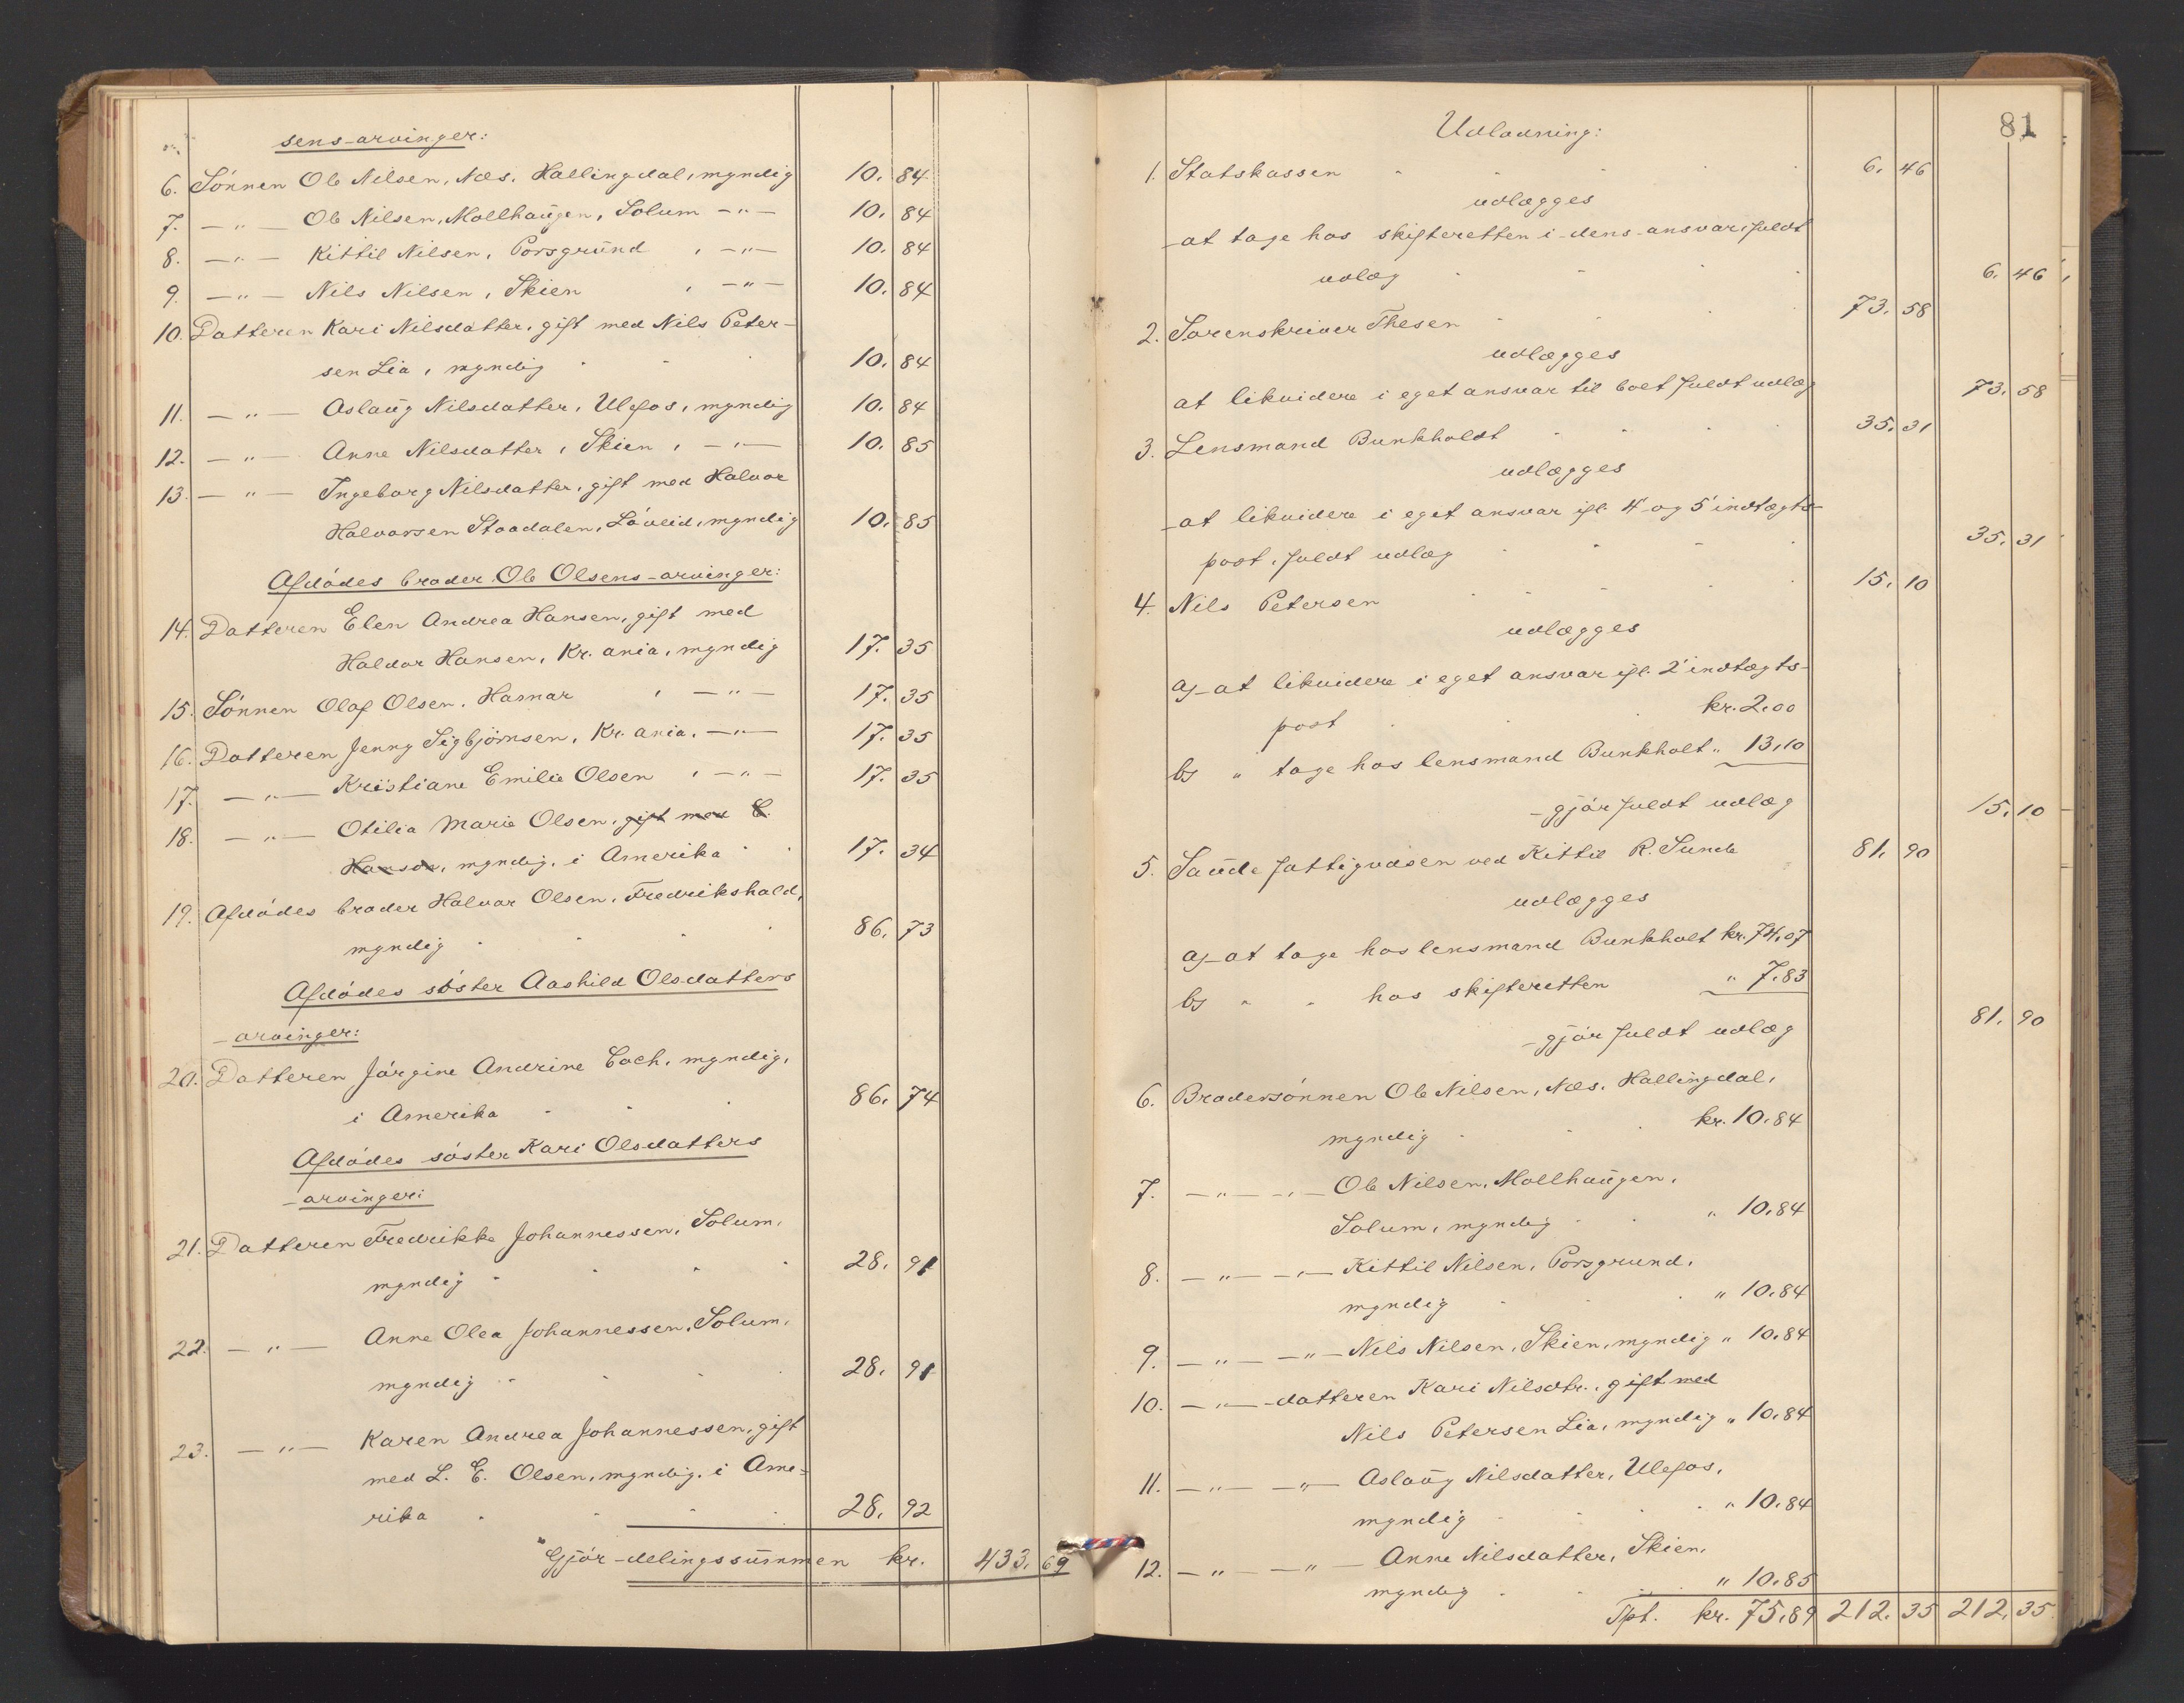 sens arvinger:
6. Sönnen Ole Nilsen, Næs, Hallingdal, myndig 10. 84
7. —"— Ole Nilsen, Mollhaugen, Solum —"— 10. 84
8. —"— Kittil Nilsen, Porsgrund, —"— 10. 84
9. —"— Nils Nilsen, Skien, —"— 10. 84
10. Datteren Kari Nilsdatter, gift med Nils Peter-
sen Lia, myndig 10. 84
11. —"— Aslaug Nilsdatter, Ulefos, myndig 10. 84
12. —"— Anne Nilsdatter, Skien, —"— 10. 85
13. —"— Ingeborg Nilsdatter, gift med Halvor
Halvorsen Staadalen, Löveid, myndig 10. 85
Afdödes broder Ole Olsens arvinger:
14. Datteren Elen Andrea Hansen, gift med
Haldor Hansen, Kr.ania, myndig 17. 35
15. Sönnen Olaf Olsen, Hamar, —"— 17. 35
16. Datteren Jenny Sigbjörnsen, Kr.ania, —"— 17. 35
17. —"— Kristiane Emilie Olsen, —"— 17. 35
18. —"— Otilia Marie Olsen, gift med C.
Hanson, myndig, i Amerika 17. 34
19. Afdödes broder Halvor Olsen, Fredrikshald,
myndig 86. 73
Afdödes söster Aashild Olsdatters
arvinger:
20. Datteren Jörgine Andrine Coch, myndig,
i Amerika 86. 74
Afdödes söster Kari Olsdatters
arvinger:
21. Datteren Fredrikke Johannessen, Solum,
myndig 28. 91
22. —"— Anne Olea Johannessen, Solum,
myndig 28. 91
23. —"— Karen Andrea Johannessen, gift
med L. E. Olsen, myndig, i Ame-
rika 28. 92
Gjör delingssummen kr. 433. 69
81
Udlodning:
1. Statskassen 6. 46
udlægges
at tage hos skifteretten i dens ansvar, fuldt
udlæg 6. 46
2. Sorenskriver Thesen 73. 58
udlægges
at likvidere i eget ansvar til boet fuldt udlæg 73. 58
3. Lensmand Bunkholdt 35. 31
udlægges
at likvidere i eget ansvar ifl. 4' og 5' indtægts-
post, fuldt udlæg 35. 31
4. Nils Petersen 15. 10
udlægges
a) at likvidere i eget ansvar ifl. 2' indtægts-
post kr. 2.00
b) " tage hos lensmand Bunkholt " 13,10
gjör fuldt udlæg 15. 10
5. Saude fattigvæsen ved Kittil R. Sunde 81. 90
udlægges
a) at tage hos lensmand Bunkholt kr. 74,07
b) " " hos skifteretten " 7.83
gjör fuldt udlæg 81. 90
6. Brodersönnen Ole Nilsen, Næs, Hallingdal,
myndig kr. 10.84
7. —"— —"— Ole Nilsen, Mollhaugen,
Solum, myndig " 10.84
8. —"— —"— Kittil Nilsen, Porsgrund,
myndig " 10.84
9. —"— —"— Nils Nilsen, Skien, myndig " 10.84
10. —"— datteren Kari Nilsdtr., gift med
Nils Petersen Lia, myndig " 10.84
11. —"— —"— Aslaug Nilsdatter, Ulefos,
myndig " 10.84
12. —"— —"— Anne Nilsdatter, Skien,
myndig " 10.85
Tpt. kr. 75,89 212. 35 212. 35